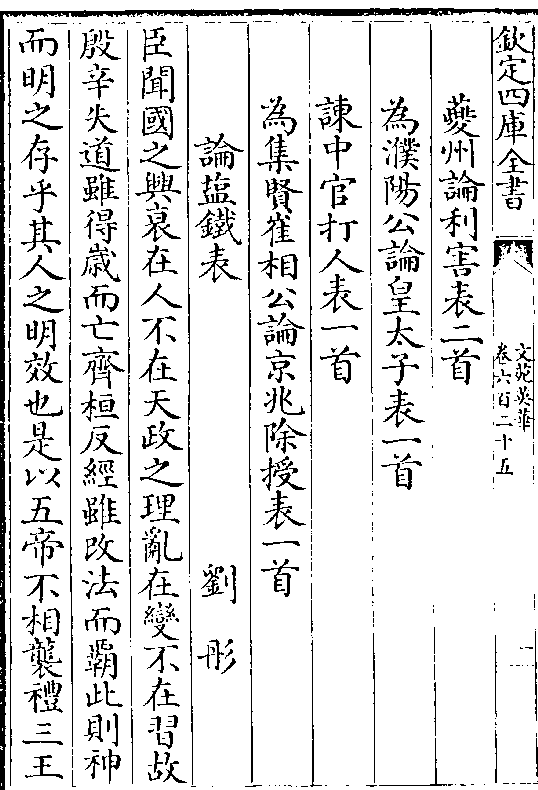 欽定四庫全書
文苑英華
卷六百二十五
一
夔州論利害表二首
為濮陽公論皇太子表一首
諫中官打人表一首
為集賢崔相公論京兆除授表一首
論塩鐵表 劉彤
臣聞國之興衰在人不在天政之理亂在變不在習故
殷辛失道雖得歳而亡齊桓反經雖改法而霸此則神
而明之存乎其人之明效也是以五帝不相襲禮三王